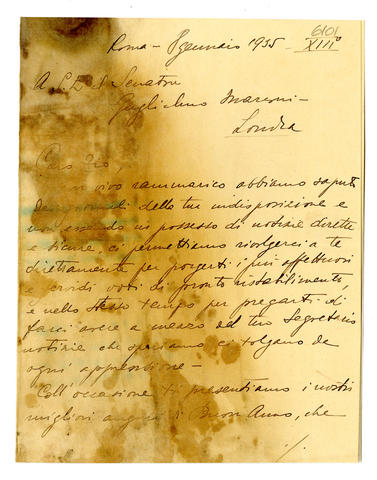 6101
Roma - 8 gennaio 1935 - XIII°
A S. E. il Senatore
Guglielmo Marconi -
Londra
Caro Zio,
vivo rammarico abbiamo saputo
dai giornali della tua indisposizione e
non essendo in possesso di notizie dirette
e sicure, ci permettiamo rivolgerci a te
direttamente per porgerti i più affettuosi
e fervidi voti di pronto ristabilimento,
e nello stesso tempo per pregarti di
farci avere a mezzo del tuo Segretario
notizie che speriamo ci tolgano da
ogni apprensione -
Coll'occasione ti presentiamo i nostri
migliori auguri di Buon Anno, che
./.